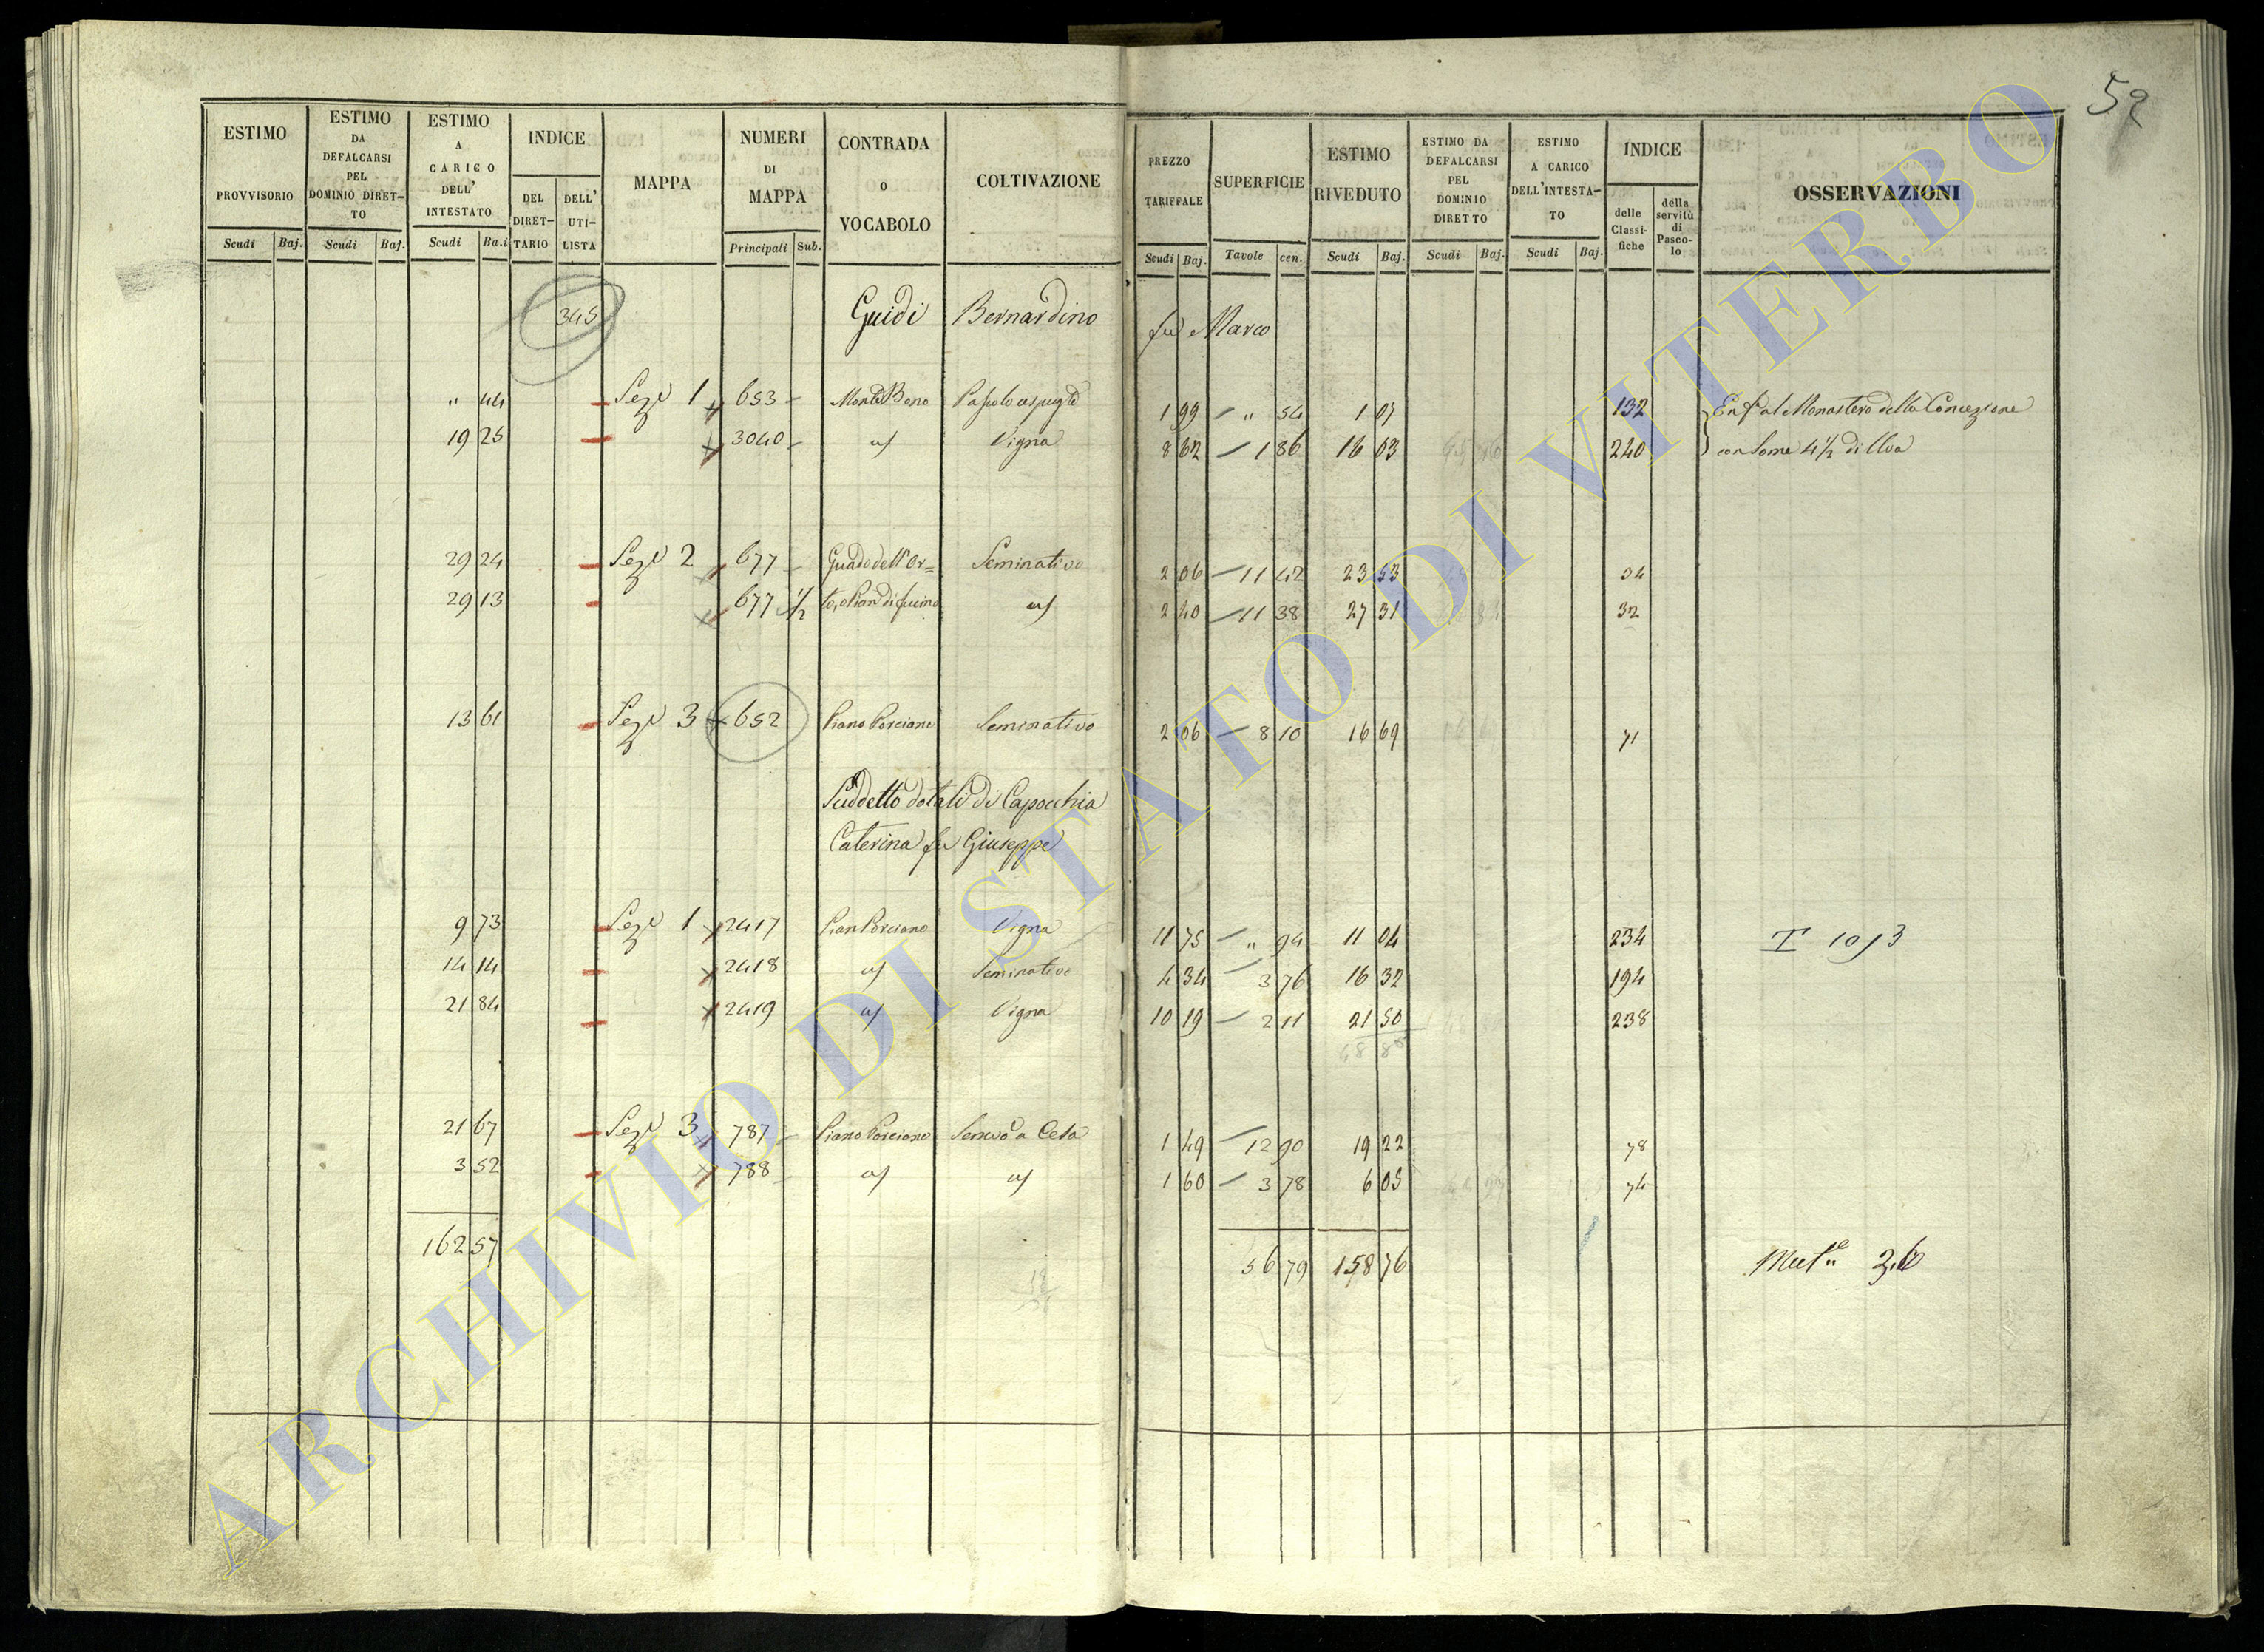 59
ESTIMO PROVVISORIO
ESTIMO DA DEFALCARSI PEL DOMINIO DIRETTO
ESTIMO A CARICO DELL' INTESTATO
INDICE
DEL DIRETTARIO
DELL' UTILISTA
MAPPA
NUMERI DI MAPPA
CONTRADA O VOCABOLO
COLTIVAZIONE
PREZZO TARIFFALE
SUPERFICIE
ESTIMO RIVEDUTO
ESTIMO DA DEFALCARSI PEL DOMINIO DIRETTO
ESTIMO A CARICO DELL'INTESTATO
INDICE
delle Classifiche
della servitù di Pascolo
OSSERVAZIONI
Scudi Baj. Scudi Baj. Scudi Ba.i Principali Sub. Scudi Baj. Tavole cen. Scudi Baj. Scudi Baj. Scudi Baj.
345 Guidi Bernardino fu Marco
" 44 Sez 1 653 Monte Bono Pascolo cespuglto 1 99 " 54 1 07 132 Enf al Monastero della Concezione
19 25 3040 Vigna 8 62 1 86 16 03 240 con Some 4 1/2 di Uva
29 24 Sez 2 677 Guado dell'Or= Seminativo 2 06 11 42 23 53 54
29 13 677 1/2 to, o Pian di fucino 2 40 11 38 27 31 32
13 61 Sez 3 652 Piano Porciano Seminativo 2 06 8 10 16 69 71
Suddetto dotali di Capocchia
Caterina fu Giuseppe
9 73 Sez 1 2417 Pian Porciano Vigna 11 75 " 94 11 04 234 I 1013
14 14 2418 Seminativo 4 34 3 76 16 32 194
21 84 2419 Vigna 10 19 2 11 21 50 238
48 86
21 67 Sez 3 787 Piano Porciano a Cesa 1 49 12 90 19 22 78
3 52 788 1 60 3 78 6 05 74
162 57 56 79 158 76
ARCHIVIO DI STATO DI VITERBO